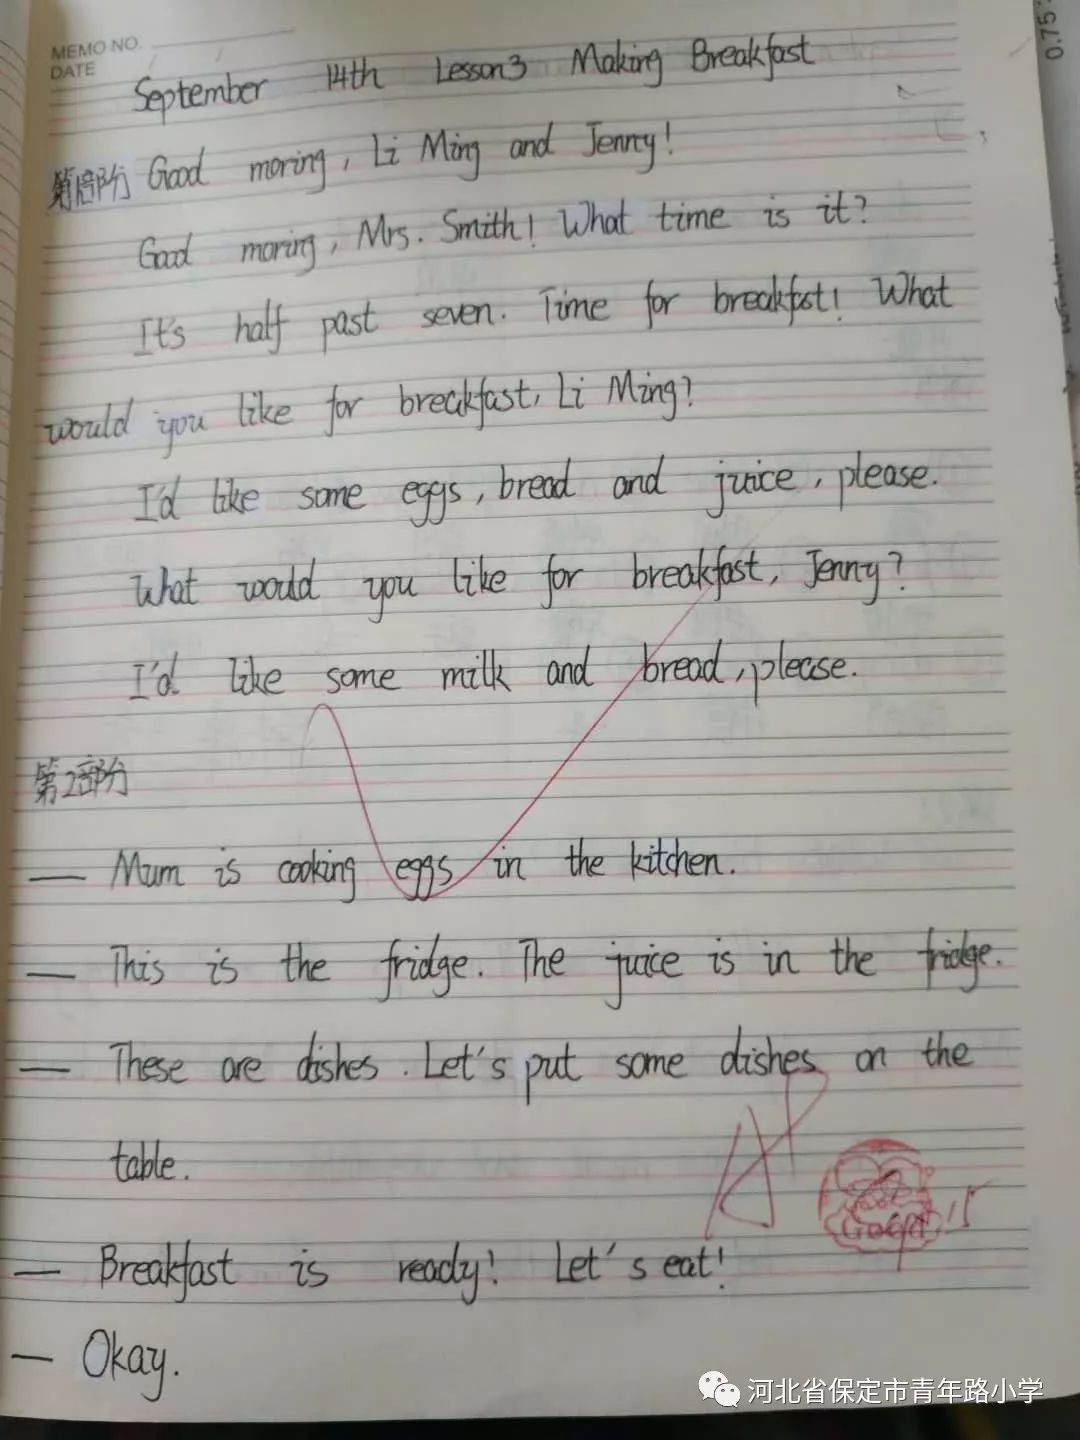 MEMO NO.
DATE
0.75
September 14th Lesson3 Making Breakfast
第1部分 Good moring, Li Ming and Jenny!
Good moring, Mrs. Smith! What time is it?
It's half past seven. Time for breakfst! What
would you like for breakfast, Li Ming?
I'd like some eggs, bread and juice, please.
What would you like for breakfast, Jenny?
I'd like some milk and bread, please.
第2部分
— Mum is cooking eggs in the kitchen.
— This is the fridge. The juice is in the fridge.
— These are dishes. Let's put some dishes on the
table.
— Breakfast is ready! Let's eat!
— Okay.
A+
Good
河北省保定市青年路小学